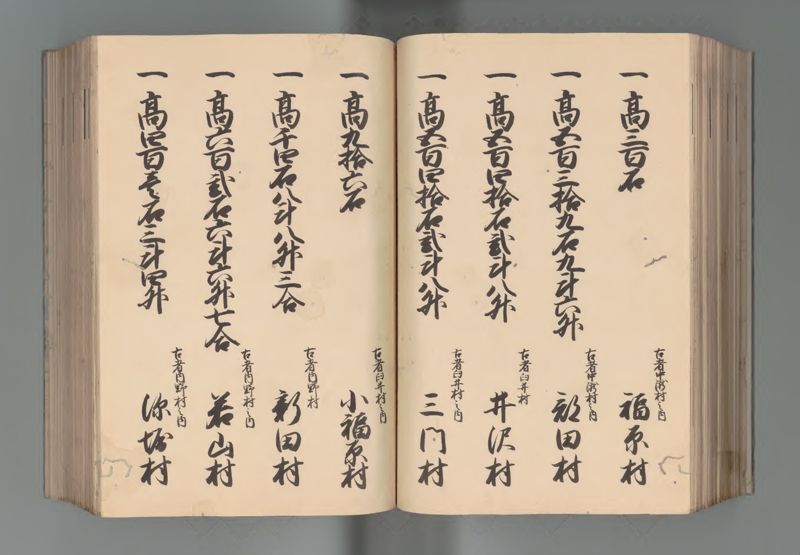 一高三百石
古者中滝村之内
福原村
一高五百三拾九石九斗六升
古者中滝村之内
部田村
一高五百四拾石弐斗八升
古者臼井村
井沢村
一高五百四拾石弐斗八升
古者臼井村之内
三門村
一高九拾六石
古者臼井村之内
小福原村
一高千四石八斗八升三合
古者内野村
新田村
一高六百弐石六斗六升七合
古者内野村之内
若山村
一高四百壱石三斗四升
古者内野村之内
深堀村